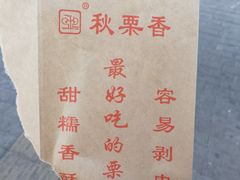 ®秋栗香
最好吃的栗
容易剥
甜糯香